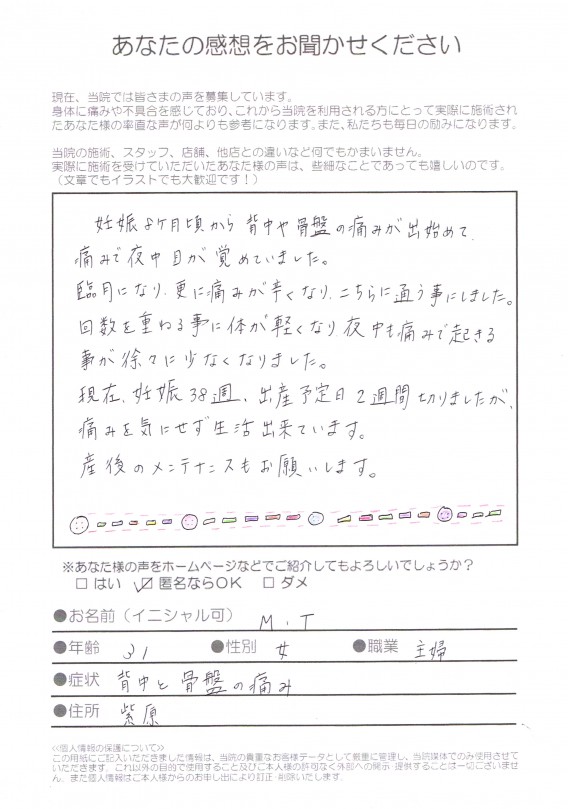 あなたの感想をお聞かせください
現在、当院では皆さまの声を募集しています。
身体に痛みや不具合を感じており、これから当院を利用される方にとって実際に施術され
たあなた様の率直な声が何よりも参考になります。また、私たちも毎日の励みになります。
当院の施術、スタッフ、店舗、他店との違いなど何でもかまいません。
実際に施術を受けていただいたあなた様の声は、些細なことであっても嬉しいのです。
（文章でもイラストでも大歓迎です！）
妊娠8ヶ月頃から背中や骨盤の痛みが出始めて、
痛みで夜中目が覚めていました。
臨月になり、更に痛みが辛くなり、こちらに通う事にしました。
回数を重ねる事に体が軽くなり夜中も痛みで起きる
事が徐々に少なくなりました。
現在、妊娠38週、出産予定日2週間切りましたが、
痛みを気にせず生活出来ています。
産後のメンテナンスもお願いします。
※あなた様の声をホームページなどでご紹介してもよろしいでしょうか？
□はい ☑匿名ならOK □ダメ
●お名前（イニシャル可） M.T
●年齢 31 ●性別 女 ●職業 主婦
●症状 背中と骨盤の痛み
●住所 紫原
<<個人情報の保護について>>
この用紙にご記入いただきました情報は、当院の貴重なお客様データとして厳重に管理し、当院媒体でのみ使用させて
いただきます。これ以外の目的で使用すること及びご本人様の許可なく外部への開示・提供することは一切ございませ
ん。また個人情報はご本人様からのお申し出により訂正・削除いたします。